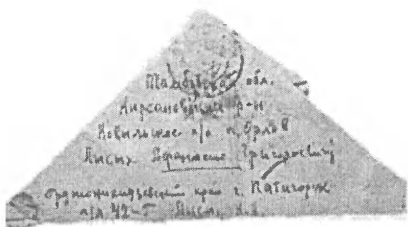 Тамбовская обл.
Кирсановский р-н
Ковыльское п/о п. Орлов
Лисых Афанасию Григоровичу
Орджоникидзевский край г. Пятигорск
п/я 42-